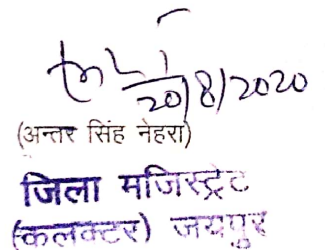 20/8/2020
(अन्तर सिंह नेहरा)
जिला मजिस्ट्रेट
(कलक्टर) जयपुर